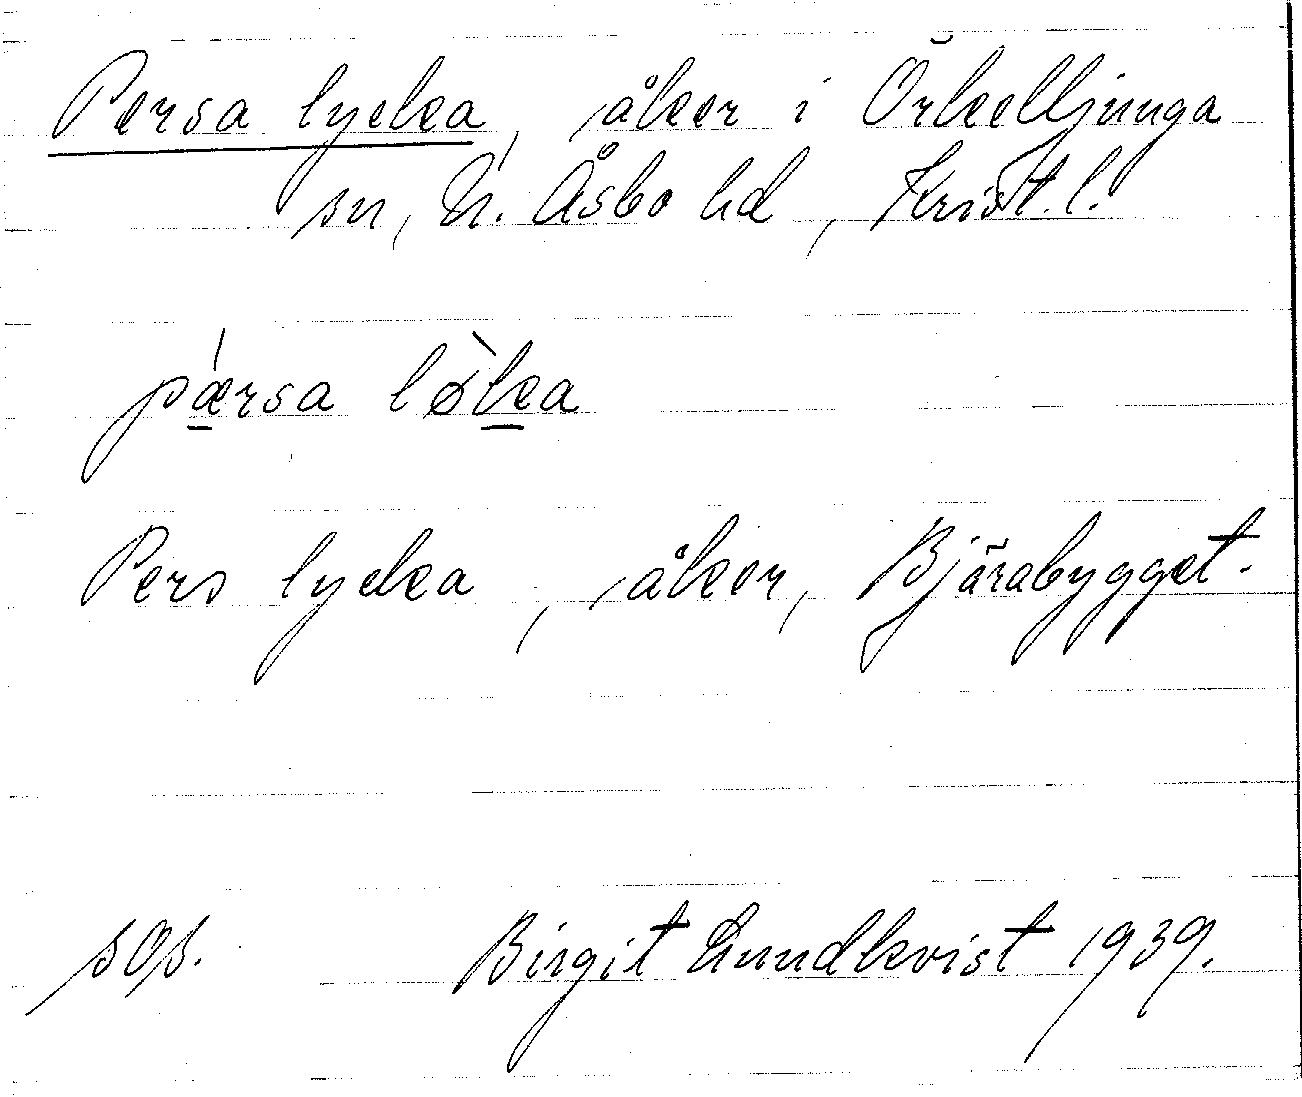 Persa lycka, åker i Örkelljunga
sn, N. Åsbo hd, Krist. l.
pǽrsa lø̀ka
Pers lycka, åker, Bjärabygget.
sgs.
Birgit Lundkvist 1939.